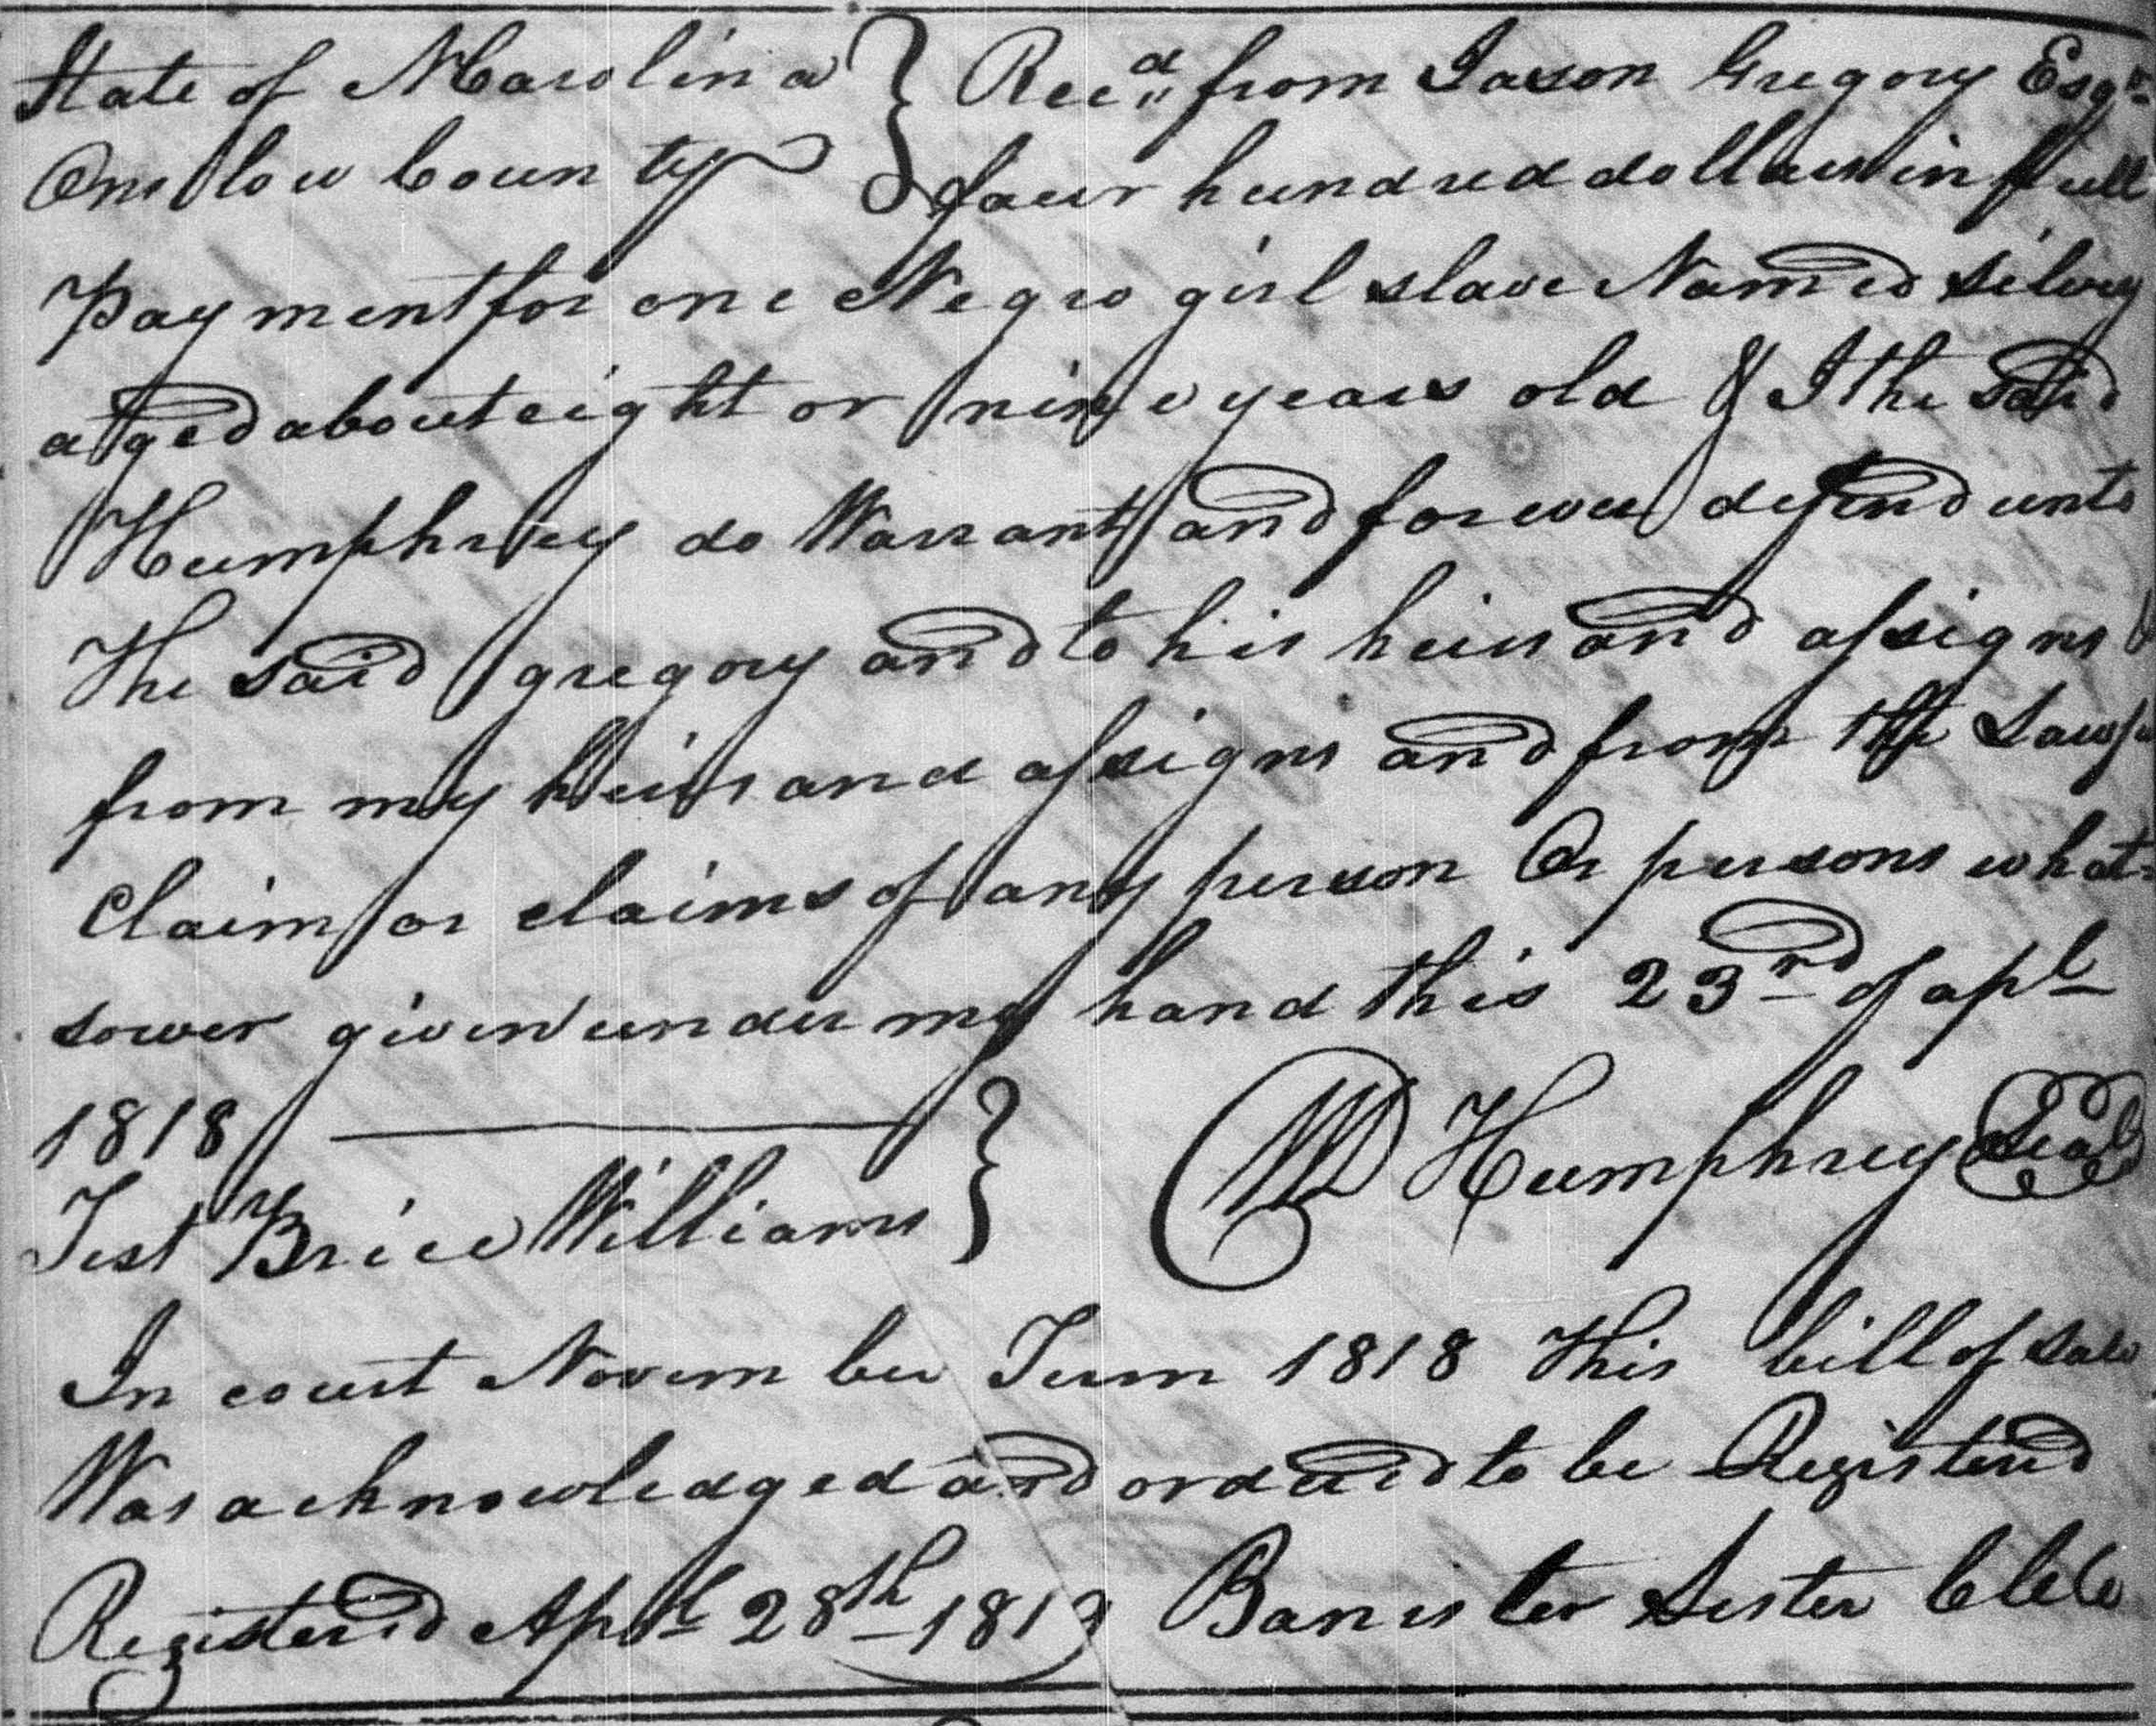 State of N Carolina } Recd from Jason Gregory Esqr
Onslow County } four hundred dollars in full
Payment for one Negro girl slave Named Silvey
aged about eight or nine years old & I the said
Humphrey do Warrant and forever defend unto
The said gregory and to his heirs and assigns
from my heirs and assigns and from the Lawfu
Claim or claims of any person Or persons what-
sower given under my hand this 23rd of apl
1818
Test Brice Williams } W Humphrey Seal
In court November Term 1818 This bill of sale
Was acknowledged and ordered to be Registered
Registered Aprl 28th 1819 Banister Lester Clk